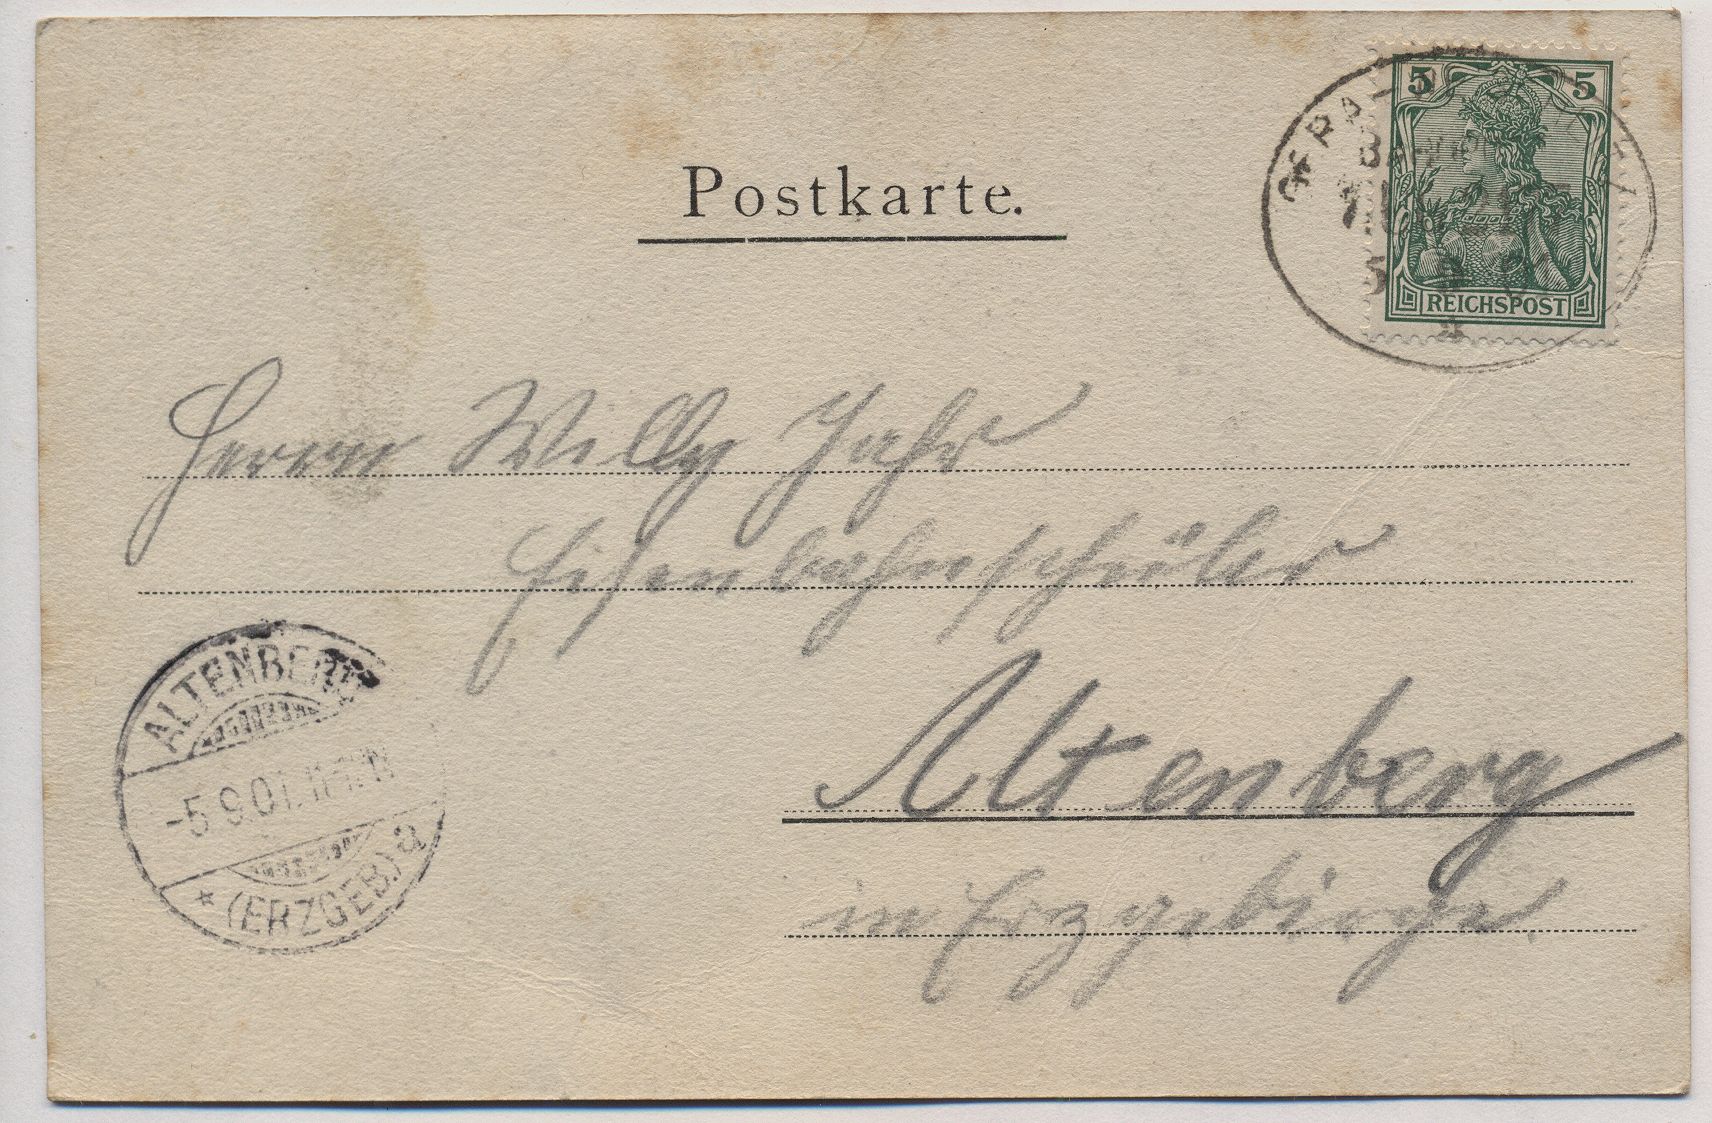 Postkarte.
5 5
REICHSPOST
Herrn Willy Jahr
Eisenbahnschüler
Altenberg
in Erzgebirge.
ALTENBERG
-5 9 01. 11-12 N
* (ERZGEB.) a